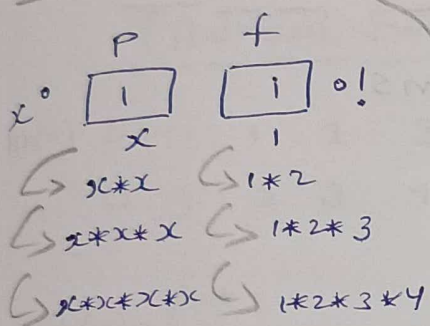 p f
x° 1 1 0!
x 1
x*x 1*2
x*x*x 1*2*3
x*x*x*x 1*2*3*4